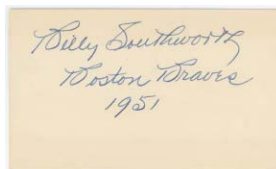 Billy Southworth
Boston Braves
1951